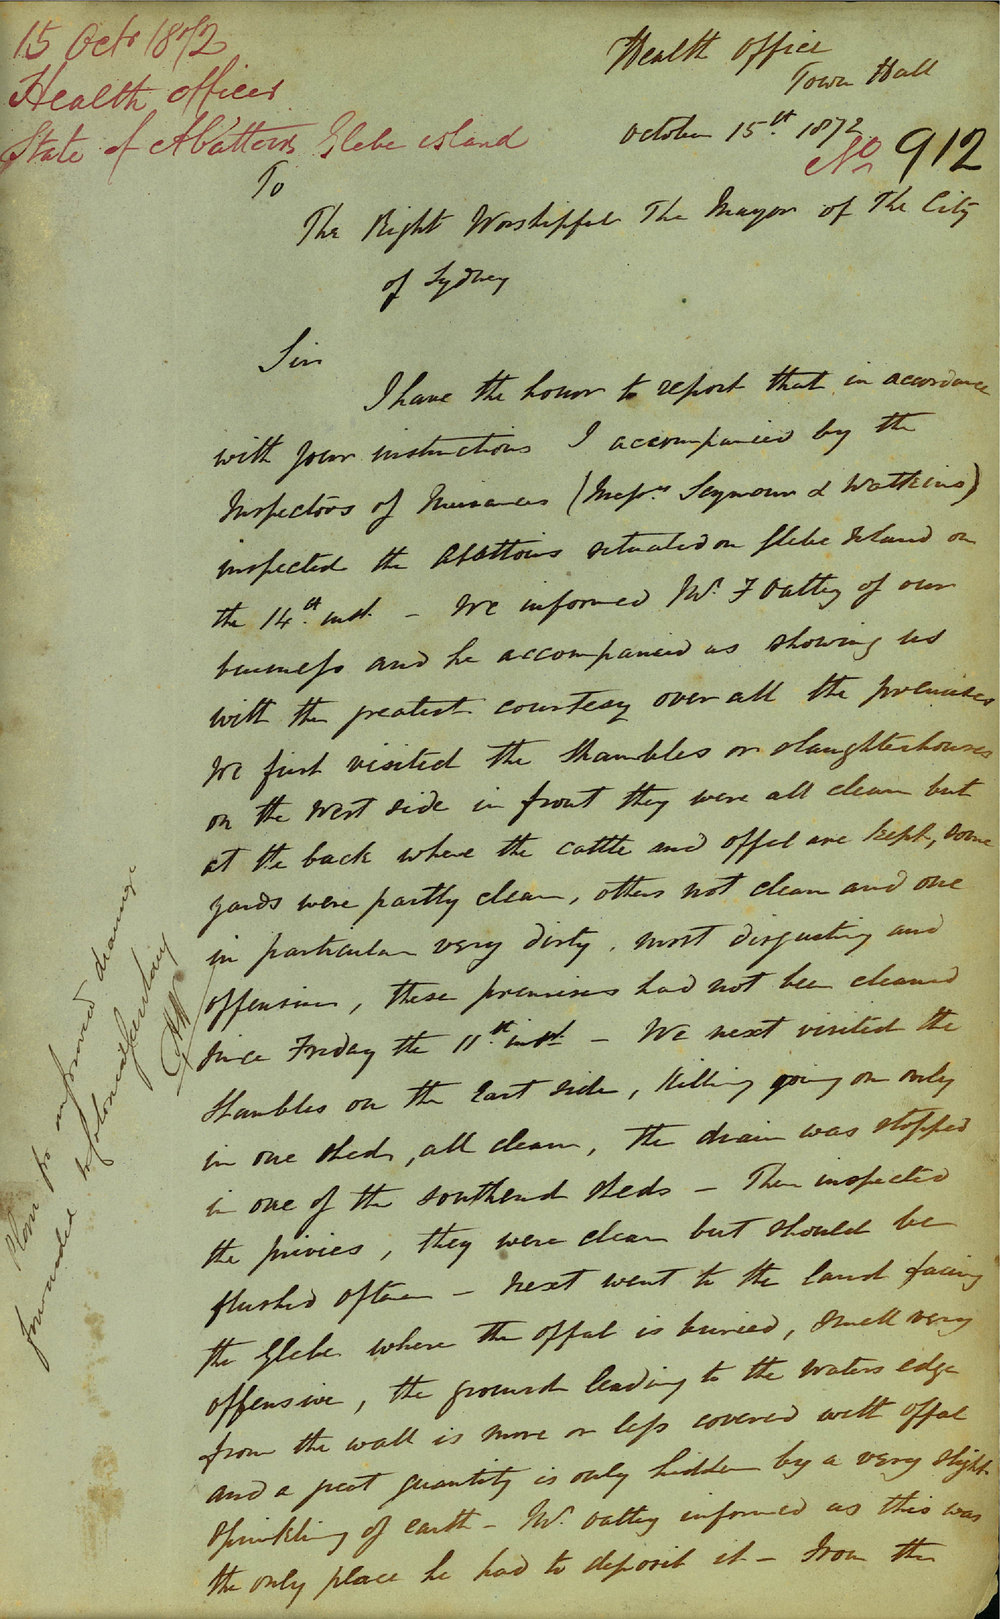 15 Octr 1872
Health officer
State of Abattoirs Glebe island
Health Office
Town Hall
October 15th 1872
No 912
To
The Right Worshipful The Mayor of The City
of Sydney
Sir
I have the honor to report that in accordance
with your instructions I accompanied by the
Inspectors of Nuisances (Messrs Seymour & Watkins)
inspected the Abattoirs situated on Glebe Island on
the 14th inst. – We informed Mr. F Oatley of our
business and he accompanied us showing us
with the greatest courtesy over all the premises
We first visited the Shambles or slaughterhouses
on the West side in front they were all clean but
at the back where the cattle and offal are kept, some
yards were partly clean, others not clean and one
in particular very dirty, most disgusting and
offensive, these premises had not been cleaned
since Friday the 11th inst – We next visited the
Shambles on the East side, killing going on only
in one shed, all clean, the drain was stopped
in one of the southend sheds – Then inspected
the privies, they were clean but should be
flushed oftener – Next went to the land facing
the Glebe where the offal is buried, smell very
offensive, the ground leading to the waters edge
from the wall is more or less covered with offal
and a great quantity is only hidden by a very slight
sprinkling of earth – Mr. Oatley informed us this was
the only place he had to deposit it – From the
Plan for improved drainage
forwarded to Colonial Secretary